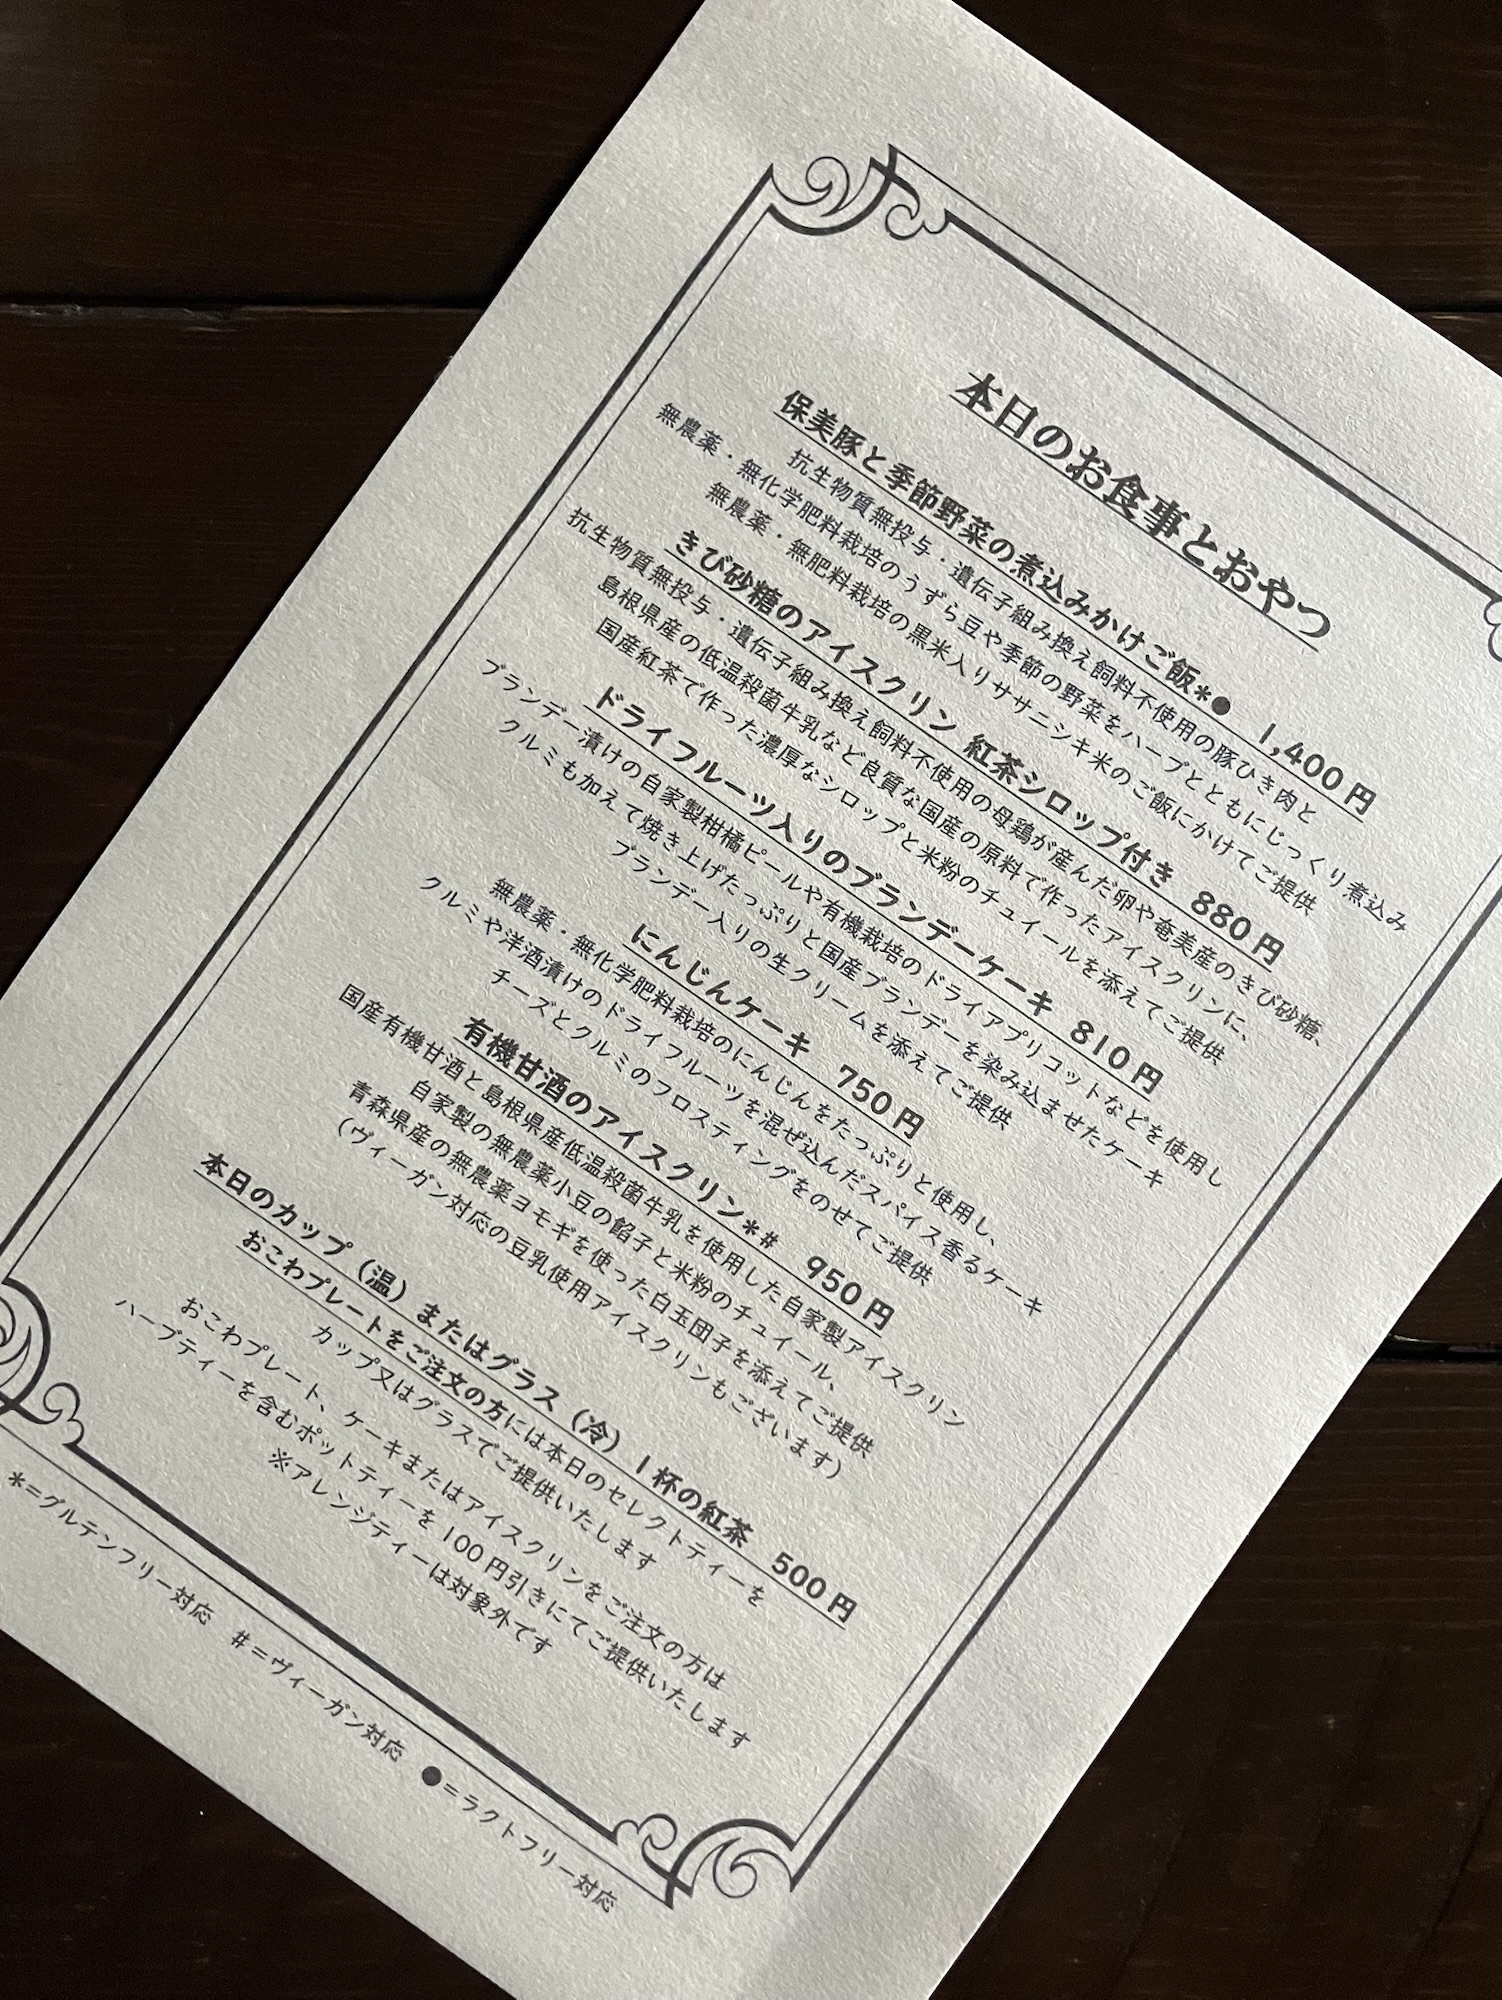 本日のお食事とおやつ
保美豚と季節野菜の煮込みかけご飯*● 1,400円
抗生物質無投与・遺伝子組み換え飼料不使用の豚ひき肉と
無農薬・無化学肥料栽培のうずら豆や季節の野菜をハーブとともにじっくり煮込み
無農薬・無肥料栽培の黒米入りササニシキ米のご飯にかけてご提供
きび砂糖のアイスクリン 紅茶シロップ付き 880円
抗生物質無投与・遺伝子組み換え飼料不使用の母鶏が産んだ卵や奄美産のきび砂糖、
島根県産の低温殺菌牛乳など良質な国産の原料で作ったアイスクリンに、
国産紅茶で作った濃厚なシロップと米粉のチュイールを添えてご提供
ドライフルーツ入りのブランデーケーキ 810円
ブランデー漬けの自家製柑橘ピールや有機栽培のドライアプリコットなどを使用し
クルミも加えて焼き上げたっぷりと国産ブランデーを染み込ませたケーキ
ブランデー入りの生クリームを添えてご提供
にんじんケーキ 750円
無農薬・無化学肥料栽培のにんじんをたっぷりと使用し、
クルミや洋酒漬けのドライフルーツを混ぜ込んだスパイス香るケーキ
チーズとクルミのフロスティングをのせてご提供
有機甘酒のアイスクリン*# 950円
国産有機甘酒と島根県産低温殺菌牛乳を使用した自家製アイスクリン
自家製の無農薬小豆の餡子と米粉のチュイール、
青森県産の無農薬ヨモギを使った白玉団子を添えてご提供
(ヴィーガン対応の豆乳使用アイスクリンもございます)
本日のカップ(温)またはグラス(冷)1杯の紅茶 500円
おこわプレートをご注文の方には本日のセレクトティーを
カップ又はグラスでご提供いたします
おこわプレート、ケーキまたはアイスクリンをご注文の方は
ハーブティーを含むポットティーを100円引きにてご提供いたします
※アレンジティーは対象外です
*=グルテンフリー対応 #=ヴィーガン対応 ●=ラクトフリー対応